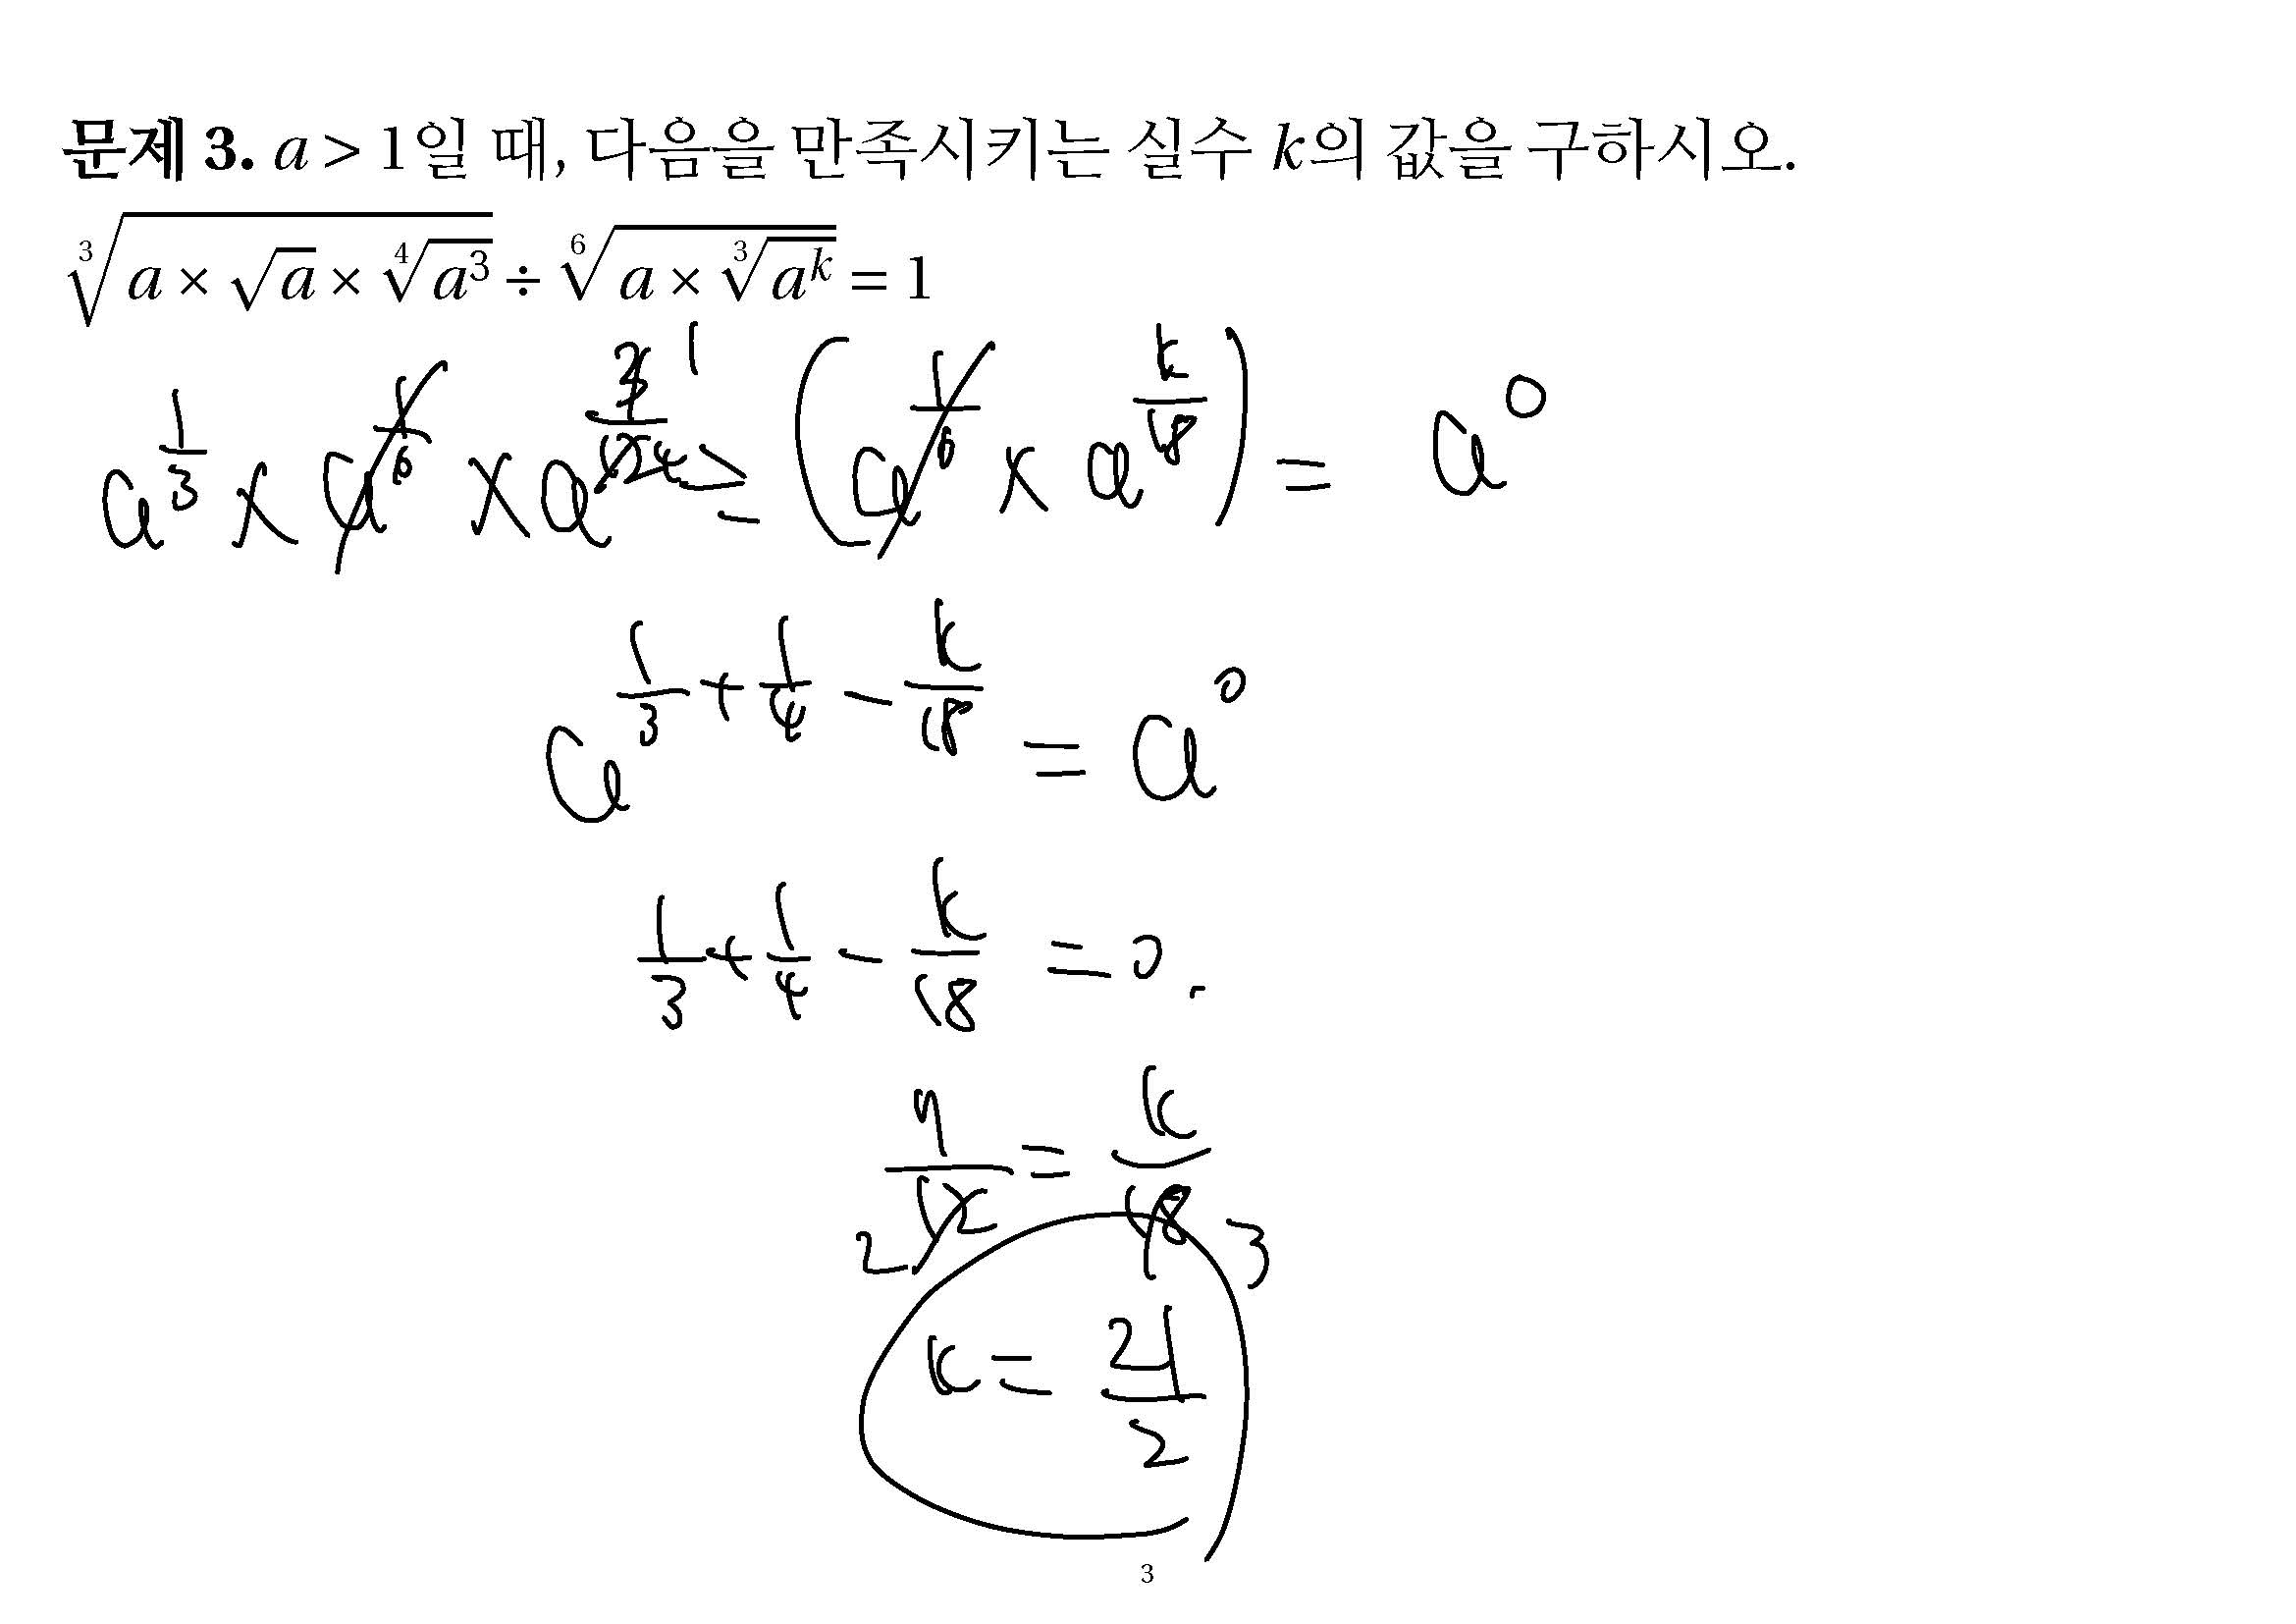 문제 3. a > 1일 때, 다음을 만족시키는 실수 k의 값을 구하시오.
∛(a × √a × ∜(a³)) ÷ ⁶√(a × ∛(a^k)) = 1
a^(1/3) × a^(1/6) × a^(1/4) ÷ (a^(1/6) × a^(k/18)) = a^0
a^(1/3 + 1/4 - k/18) = a^0
1/3 + 1/4 - k/18 = 0.
7/12 = k/18
2 3
k = 21/2
3